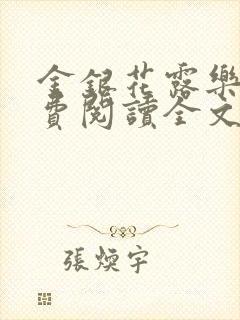 金銀花露樂
費閱讀全文
張煥宇